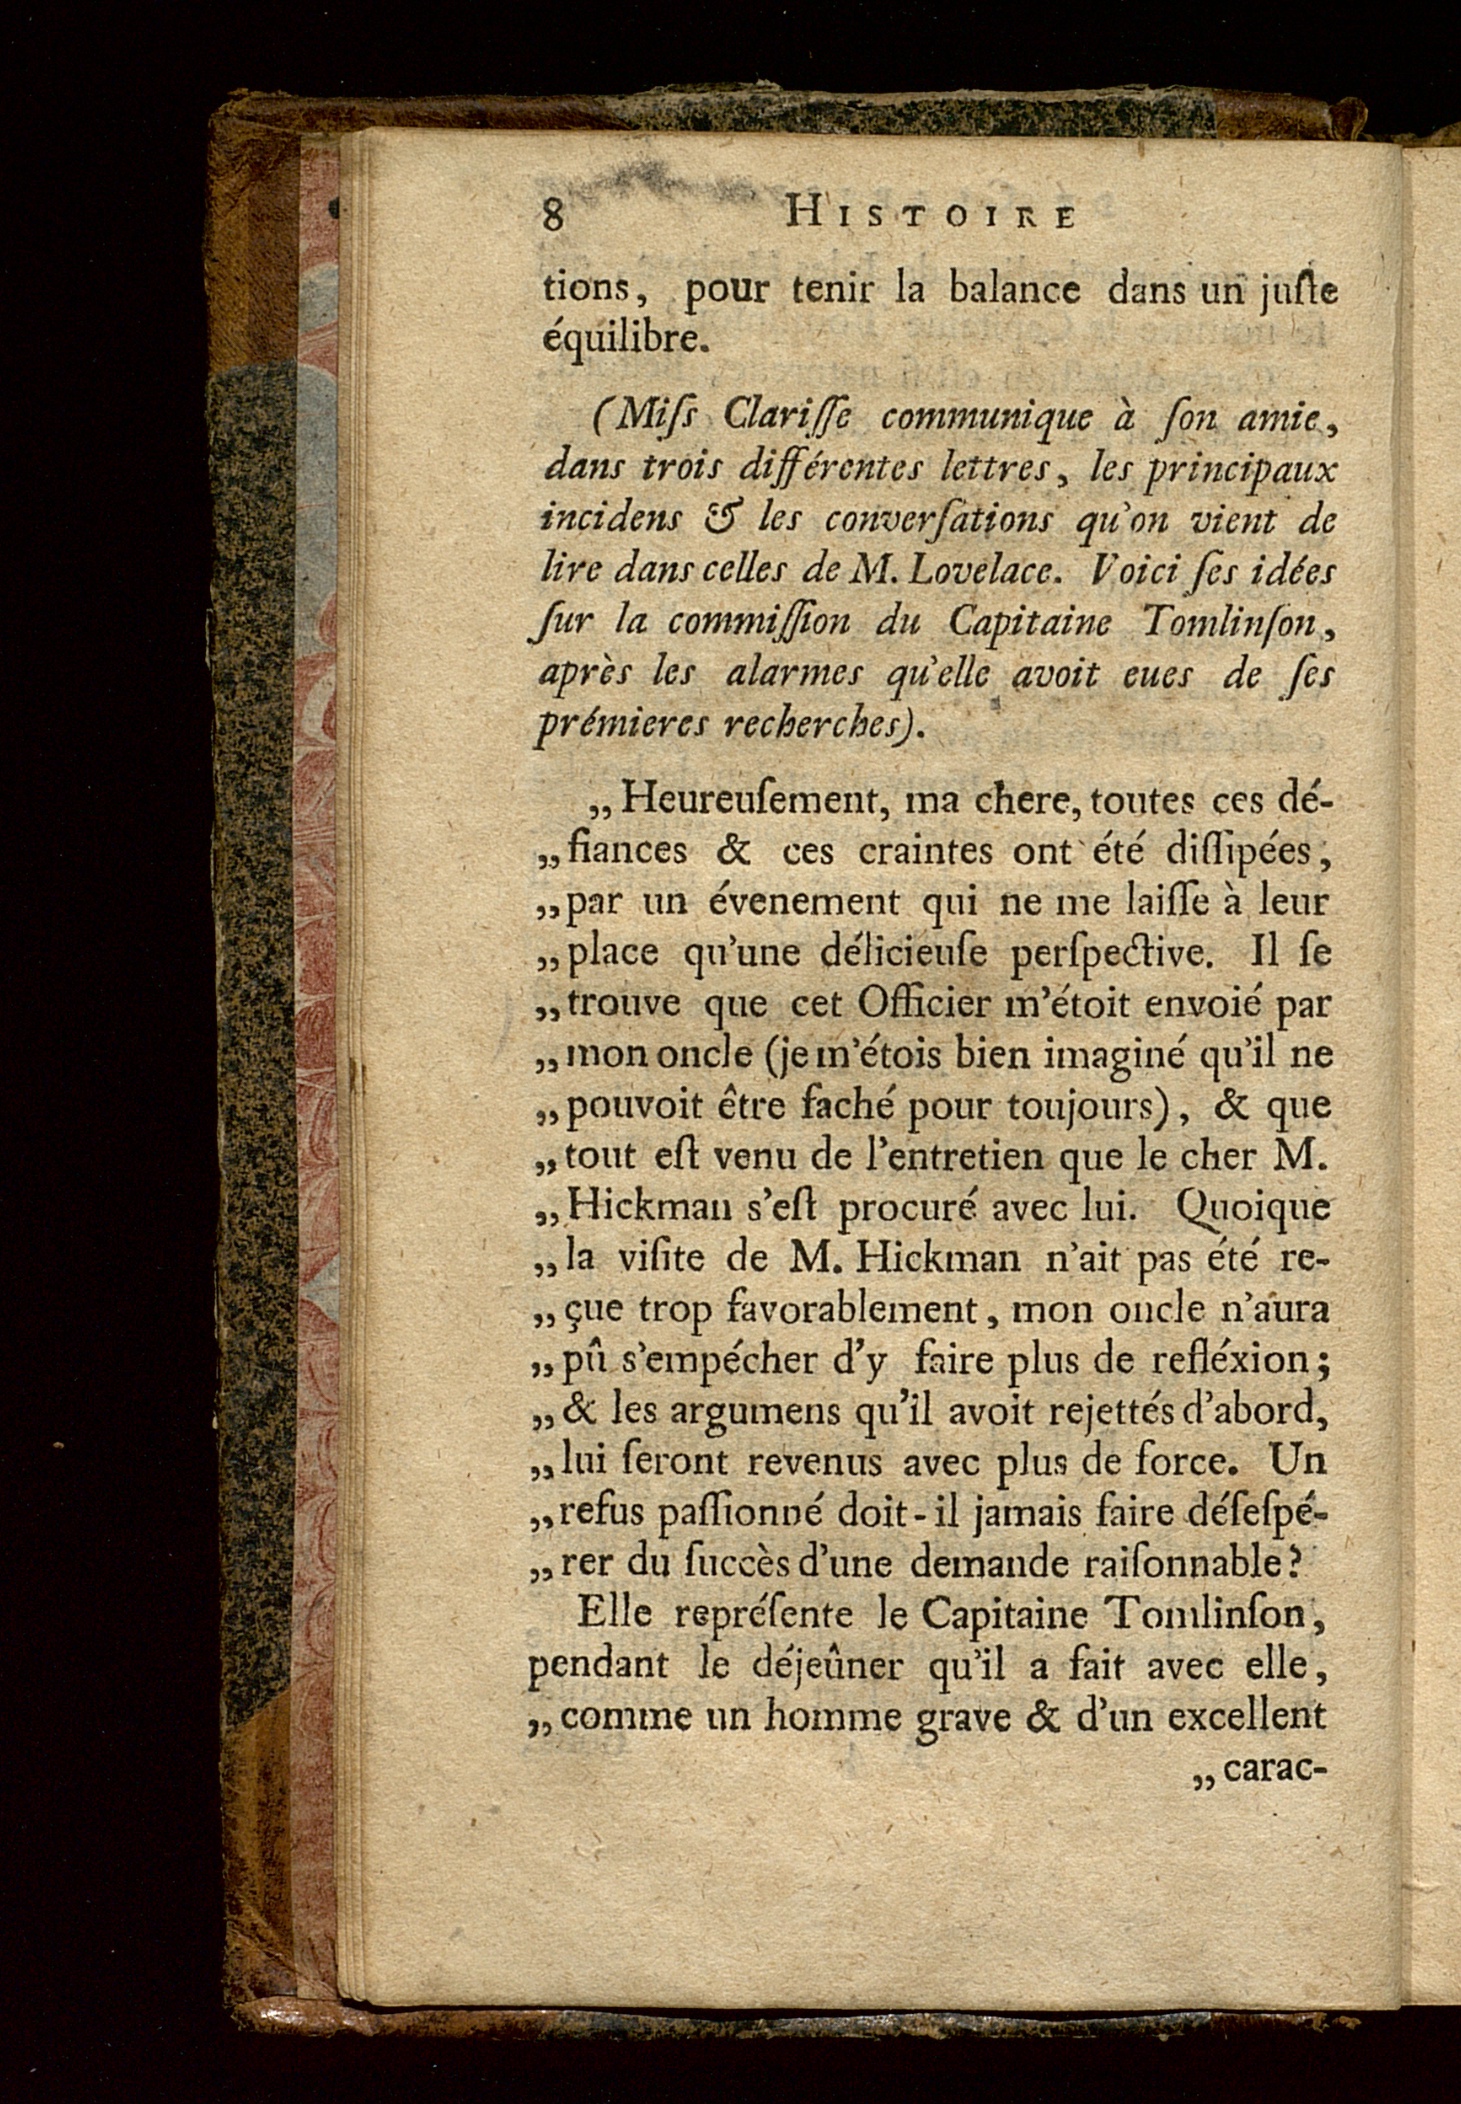 8 HISTOIRE
tions, pour tenir la balance dans un juſte
équilibre.
(Miſs Clariſſe communique à ſon amie,
dans trois différentes lettres, les principaux
incidens & les converſations qu'on vient de
lire dans celles de M. Lovelace. Voici ſes idées
ſur la commiſſion du Capitaine Tomlinſon,
après les alarmes qu'elle avoit eues de ſes
prémieres recherches).
„Heureuſement, ma chere, toutes ces dé-
„fiances & ces craintes ont été diſſipées,
„par un évenement qui ne me laiſſe à leur
„place qu'une délicieuſe perſpective. Il ſe
„trouve que cet Officier m'étoit envoié par
„mon oncle (je m'étois bien imaginé qu'il ne
„pouvoit être faché pour toujours), & que
„tout eſt venu de l'entretien que le cher M.
„Hickman s'eſt procuré avec lui. Quoique
„la viſite de M. Hickman n'ait pas été re-
„çue trop favorablement, mon oncle n'aura
„pû s'empécher d'y faire plus de refléxion;
„& les argumens qu'il avoit rejettés d'abord,
„lui ſeront revenus avec plus de force. Un
„refus paſſionné doit-il jamais faire déſeſpé-
„rer du ſuccès d'une demande raiſonnable?
Elle repréſente le Capitaine Tomlinſon,
pendant le déjeûner qu'il a fait avec elle,
„comme un homme grave & d'un excellent
„carac-